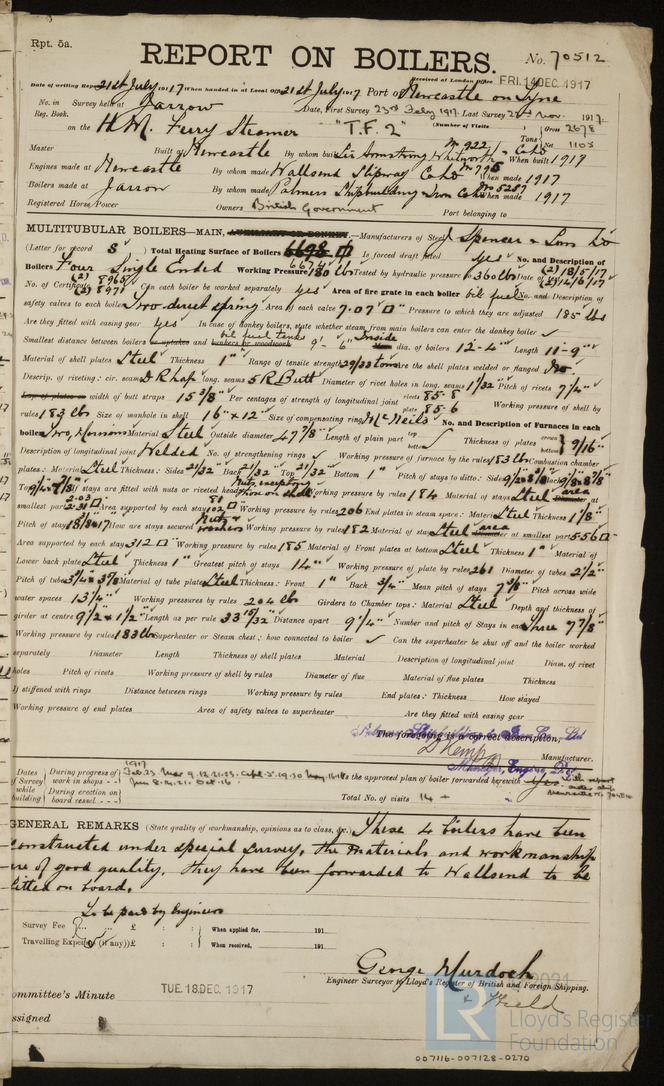 Rpt. 5a.
REPORT ON BOILERS.
No. 70512
Received at London Office FRI. 14 DEC. 1917
Date of writing Report 21st July 1917 When handed in at Local Office 21st July 1917 Port of Newcastle on Tyne
No. in Survey held at Jarrow Date, First Survey 23rd Feby 1917 Last Survey Nov. 1917
Reg. Book. (Number of Visits
on the H.M. Ferry Steamer "T.F. 2" Tons Gross 2678 Net 1105
Master Built at Newcastle By whom built Sir Armstrong Whitworth & Co Ld No 922 When built 1917
Engines made at Newcastle By whom made Wallsend Slipway Co Ld No 795 When made 1917
Boilers made at Jarrow By whom made Palmers Shipbuilding & Iron Co Ld No 5287 When made 1917
Registered Horse Power Owners British Government Port belonging to
MULTITUBULAR BOILERS—MAIN, AUXILIARY OR DONKEY.—Manufacturers of Steel J Spencer & Sons Ld
(Letter for record S) Total Heating Surface of Boilers 6698 6674 Is forced draft fitted yes No. and Description of
Boilers Four Single Ended Working Pressure 180 lbs Tested by hydraulic pressure to 360 lbs Date of test (2) 18/5/17 (2) 14/6/17
No. of Certificate (2) 8965 (2) 8971 Can each boiler be worked separately yes Area of fire grate in each boiler oil fuel No. and Description of
safety valves to each boiler Two direct spring Area of each valve 7.07 □" Pressure to which they are adjusted 185 lbs
Are they fitted with easing gear yes In case of donkey boilers, state whether steam from main boilers can enter the donkey boiler ✓
Smallest distance between boilers or uptakes and bunkers or woodwork oil fuel tank 9'-6" Inside dia. of boilers 12'-4" Length 11'-9"
Material of shell plates Steel Thickness 1" Range of tensile strength 29/33 tons Are the shell plates welded or flanged No.
Descrip. of riveting: cir. seams DR lap long. seams 5R Butt Diameter of rivet holes in long. seams 1 1/32 Pitch of rivets 7 1/4"
Lap of plates or width of butt straps 15 3/8" Per centages of strength of longitudinal joint rivets 85.8 plate 85.6 Working pressure of shell by
rules 183 lbs Size of manhole in shell 16" x 12" Size of compensating ring McNeil's No. and Description of Furnaces in each
boiler Two, Morisons Material Steel Outside diameter 47 7/8" Length of plain part top bottom Thickness of plates crown bottom 9/16"
Description of longitudinal joint Welded No. of strengthening rings ✓ Working pressure of furnace by the rules 183 lbs Combustion chamber
plates: Material Steel Thickness: Sides 21/32" Back 21/32" Top 21/32" Bottom 1" Pitch of stays to ditto: Sides 9 1/2 x 8 7/8 Back 9 1/8 x 8 7/8
Top 9 1/4 x 7 7/8 If stays are fitted with nuts or riveted heads Nuts, excepting those on shell Working pressure by rules 184 Material of stays Steel Diameter area at
smallest part 2.03 2.31 □" Area supported by each stay 81 102 □" Working pressure by rules 206 End plates in steam space: Material Steel Thickness 1 1/8"
Pitch of stays 18/8 x 17 How are stays secured Nuts & washers Working pressure by rules 182 Material of stays Steel Diameter area at smallest part 5.56 □"
Area supported by each stay 312 □" Working pressure by rules 185 Material of Front plates at bottom Steel Thickness 1" Material of
Lower back plate Steel Thickness 1" Greatest pitch of stays 14" Working pressure of plate by rules 261 Diameter of tubes 2 1/2"
Pitch of tubes 3 3/4 x 3 7/8 Material of tube plates Steel Thickness: Front 1" Back 3/4" Mean pitch of stays 7 5/8" Pitch across wide
water spaces 13 1/4" Working pressures by rules 204 lbs Girders to Chamber tops: Material Steel Depth and thickness of
girder at centre 9 1/2" x 1 1/2" Length as per rule 33 15/32" Distance apart 9 1/4" Number and pitch of Stays in each Three 7 7/8"
Working pressure by rules 183 lbs Superheater or Steam chest; how connected to boiler ✓ Can the superheater be shut off and the boiler worked
separately Diameter Length Thickness of shell plates Material Description of longitudinal joint Diam. of rivet
holes Pitch of rivets Working pressure of shell by rules Diameter of flue Material of flue plates Thickness
If stiffened with rings Distance between rings Working pressure by rules End plates: Thickness How stayed
Working pressure of end plates Area of safety valves to superheater Are they fitted with easing gear
The foregoing is a correct description,
Manufacturer.
Manager, Engine
Dates of Survey while building During progress of work in shops 1917 Feb. 23 Mar 9. 12. 21. 23. Apl. 3. 19. 30 May 16. 18 Jun 8. 14. 21. Oct. 16 Is the approved plan of boiler forwarded herewith Yes with report
During erection on board vessel Total No. of visits 14
GENERAL REMARKS (State quality of workmanship, opinions as to class, &c.) These 4 boilers have been
constructed under special survey, the materials and workmanship
are of good quality. they have been forwarded to Wallsend to be
fitted on board.
To be paid by Engineers
Survey Fee £ : : When applied for, 191
Travelling Expenses (if any) £ : : When received, 191
George Murdoch
Engineer Surveyor to Lloyd's Register of British and Foreign Shipping.
Committee's Minute TUE. 18 DEC. 1917
Assigned
LR Lloyd's Register Foundation
007116-007128-0270